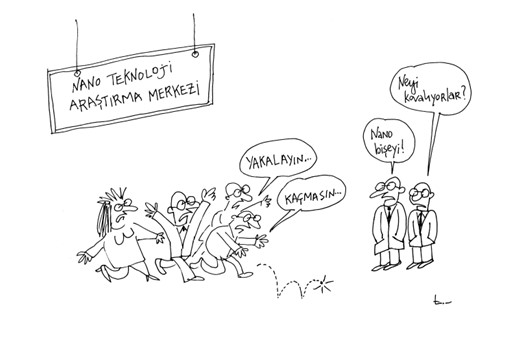 NANO TEKNOLOJİ
ARAŞTIRMA MERKEZİ
YAKALAYIN...
KAÇMASIN...
Neyi
kovalıyorlar?
Nano
bişeyi!